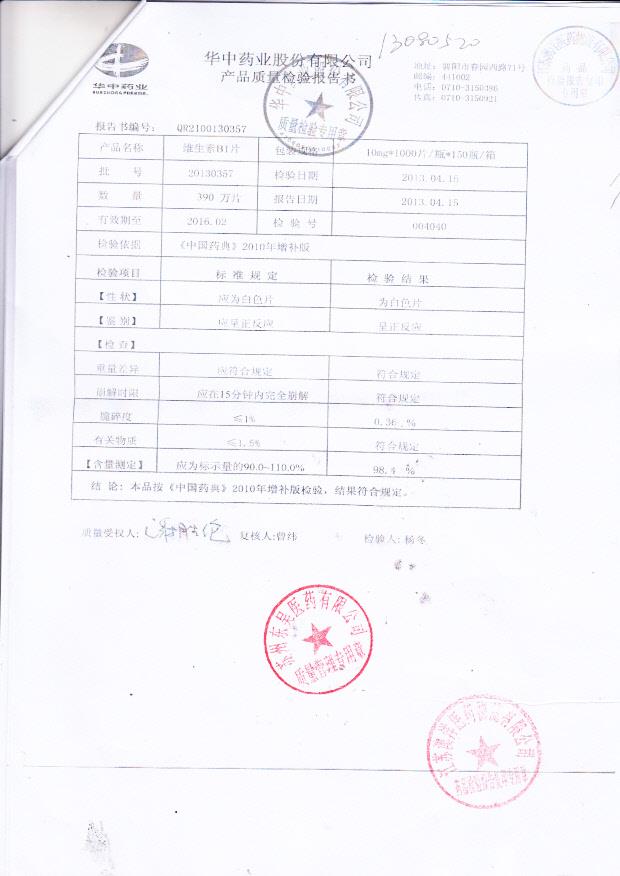 13080520
华中药业股份有限公司
产品质量检验报告书
华中药业
地址:襄阳市春园西路71号
邮编:441002
电话:0710-3150386
传真:0710-3150921
报告书编号: QR2100130357
产品名称 维生素B1片 包装规格 10mg*1000片/瓶*150瓶/箱
批 号 20130357 检验日期 2013.04.15
数 量 390 万片 报告日期 2013.04.15
有效期至 2016.02 检 验 号 004040
检验依据 《中国药典》2010年增补版
检验项目 标 准 规 定 检 验 结 果
【性 状】 应为白色片 为白色片
【鉴 别】 应呈正反应 呈正反应
【检 查】
重量差异 应符合规定 符合规定
崩解时限 应在15分钟内完全崩解 符合规定
脆碎度 ≤1% 0.36 %
有关物质 ≤1.5% 符合规定
【含量测定】 应为标示量的90.0~110.0% 98.4 %
结 论: 本品按《中国药典》2010年增补版检验,结果符合规定。
质量受权人: 复核人:曾纬 检验人: 杨冬
华中药业股份有限公司
质量检验专用章
苏州东吴医药有限公司
质量管理专用章